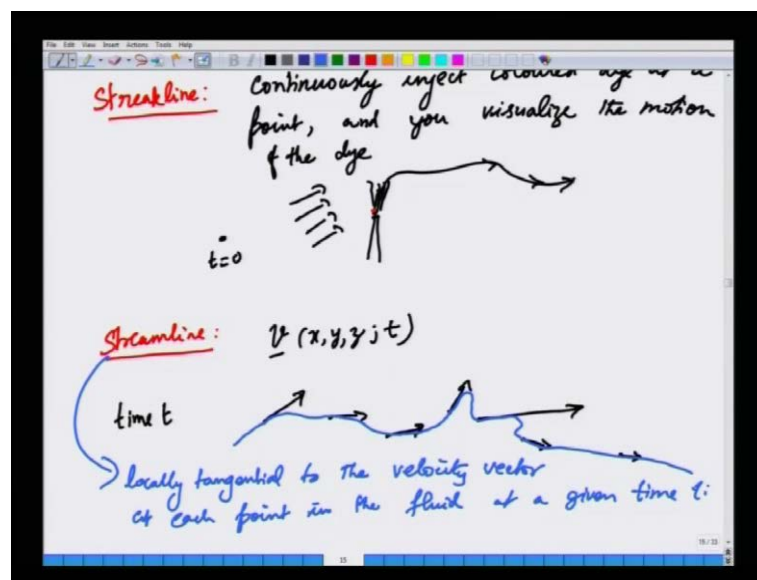 File Edit View Insert Actions Tools Help
Streakline: Continuously inject coloured dye at a
point, and you visualize the motion
of the dye
t=0
Streamline: v (x, y, z; t)
time t
locally tangential to the velocity vector
at each point in the fluid at a given time t:
15/33
15